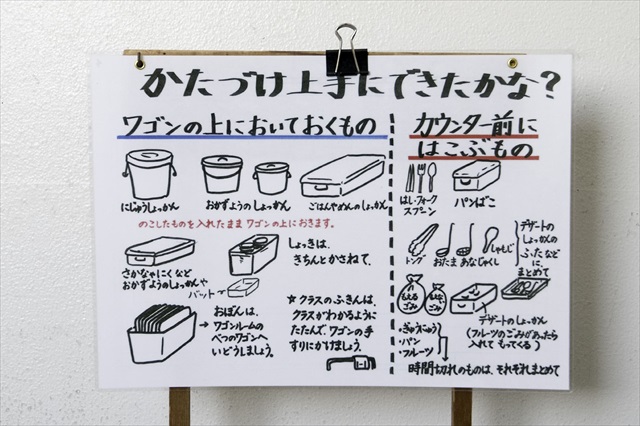 かたづけ上手にできたかな?
ワゴンの上においておくもの
にじゅうしょっかん
おかずようのしょっかん
ごはんやめんのしょっかん
のこしたものを入れたまま ワゴンの上におきます。
さかなやにくなど
おかずようのしょっかんや
バット
しょっきは、
きちんとかさねて、
おぼんは、
→ワゴンルームの
べつのワゴンへ
いどうしましょう。
☆クラスのふきんは、
クラスがわかるように
たたんで、ワゴンの手
すりにかけましょう。
カウンター前に
はこぶもの
はし・フォーク
スプーン
パンばこ
トング
おたま
あなじゃくし
しゃもじ
デザートの
しょっかんの
ふたなどに
まとめて
もえる
ごみ
もえない
ごみ
・ぎゅうにゅう
・パン
・フルーツ
デザートのしょっかん
(フルーツのごみがあったら
入れてもってくる)
時間切れのものは、それぞれまとめて